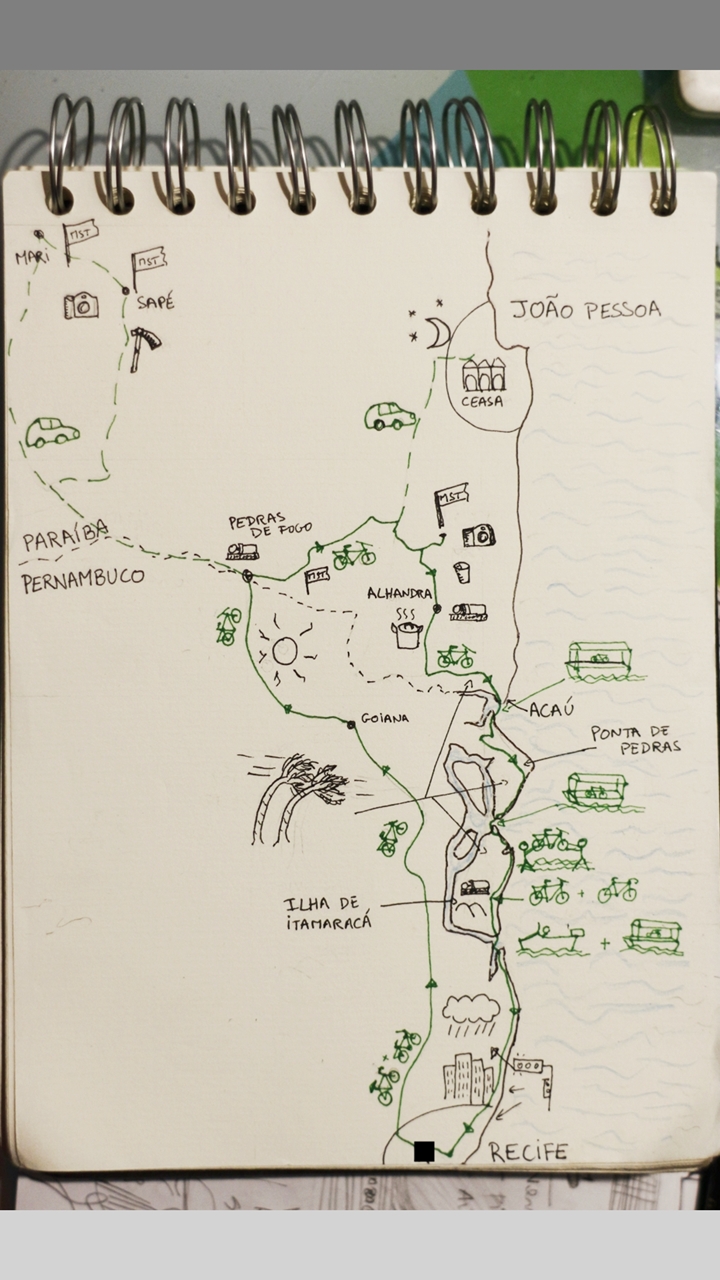 MST
MARI
MST
SAPÉ
JOÃO PESSOA
CEASA
MST
PEDRAS
DE FOGO
PARAÍBA
PERNAMBUCO
MST
ALHANDRA
SSS
ACAÚ
GOIANA
PONTA DE
PEDRAS
+
ILHA DE
ITAMARACÁ
+
+
RECIFE